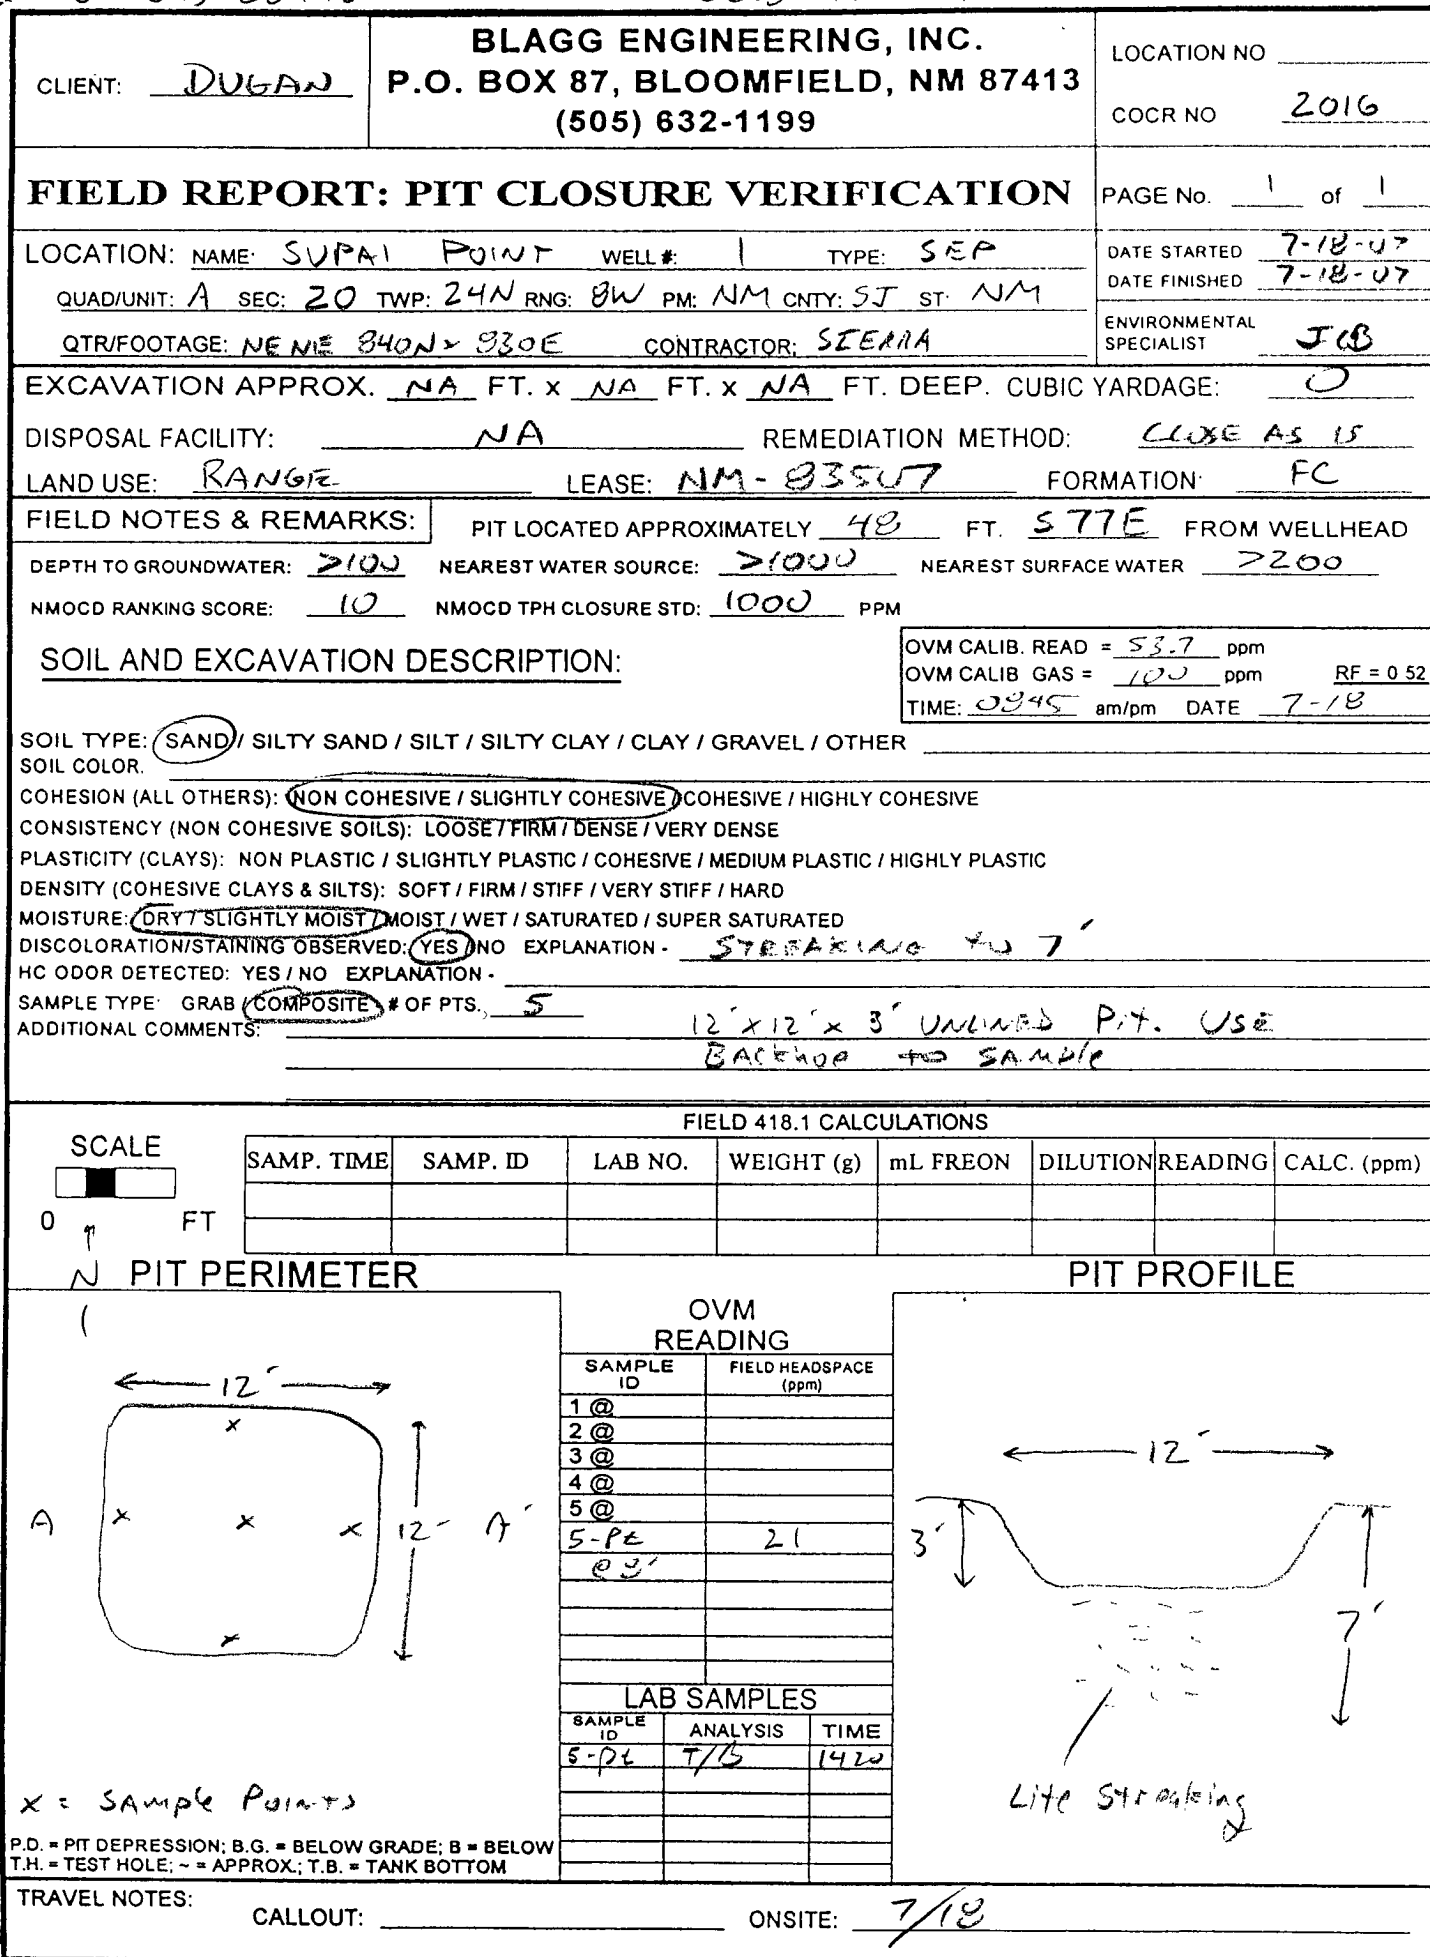 BLAGG ENGINEERING, INC.
P.O. BOX 87, BLOOMFIELD, NM 87413
(505) 632-1199
CLIENT: DUGAN
LOCATION NO
COCR NO 2016
FIELD REPORT: PIT CLOSURE VERIFICATION
PAGE No. 1 of 1
LOCATION: NAME: SUPAI POINT WELL #: 1 TYPE: SEP
QUAD/UNIT: A SEC: 20 TWP: 24N RNG: 8W PM: NM CNTY: SJ ST: NM
QTR/FOOTAGE: NE NE 840N x 930E CONTRACTOR: SIERRA
DATE STARTED 7-18-07
DATE FINISHED 7-18-07
ENVIRONMENTAL
SPECIALIST JCB
EXCAVATION APPROX. NA FT. x NA FT. x NA FT. DEEP. CUBIC YARDAGE: 0
DISPOSAL FACILITY: NA REMEDIATION METHOD: CLOSE AS IS
LAND USE: RANGE LEASE: NM-83507 FORMATION: FC
FIELD NOTES & REMARKS: PIT LOCATED APPROXIMATELY 48 FT. S77E FROM WELLHEAD
DEPTH TO GROUNDWATER: >100 NEAREST WATER SOURCE: >1000 NEAREST SURFACE WATER >200
NMOCD RANKING SCORE: 10 NMOCD TPH CLOSURE STD: 1000 PPM
SOIL AND EXCAVATION DESCRIPTION:
OVM CALIB. READ = 53.7 ppm
OVM CALIB GAS = 100 ppm RF = 0 52
TIME: 0845 am/pm DATE 7-18
SOIL TYPE: SAND / SILTY SAND / SILT / SILTY CLAY / CLAY / GRAVEL / OTHER
SOIL COLOR.
COHESION (ALL OTHERS): NON COHESIVE / SLIGHTLY COHESIVE / COHESIVE / HIGHLY COHESIVE
CONSISTENCY (NON COHESIVE SOILS): LOOSE / FIRM / DENSE / VERY DENSE
PLASTICITY (CLAYS): NON PLASTIC / SLIGHTLY PLASTIC / COHESIVE / MEDIUM PLASTIC / HIGHLY PLASTIC
DENSITY (COHESIVE CLAYS & SILTS): SOFT / FIRM / STIFF / VERY STIFF / HARD
MOISTURE: DRY / SLIGHTLY MOIST / MOIST / WET / SATURATED / SUPER SATURATED
DISCOLORATION/STAINING OBSERVED: YES / NO EXPLANATION - STREAKING to 7'
HC ODOR DETECTED: YES / NO EXPLANATION -
SAMPLE TYPE: GRAB / COMPOSITE # OF PTS. 5
ADDITIONAL COMMENTS: 12' x 12' x 3' UNLINED Pit. USE
BACKHOE to SAMPLE
FIELD 418.1 CALCULATIONS
SCALE
0 FT
SAMP. TIME SAMP. ID LAB NO. WEIGHT (g) mL FREON DILUTION READING CALC. (ppm)
N PIT PERIMETER
PIT PROFILE
OVM
READING
SAMPLE ID FIELD HEADSPACE (ppm)
1 @
2 @
3 @
4 @
5 @
5-Pt 21
@ 8'
12'
x
A x x x 12' A'
x
12'
3'
7'
Lite Streaking
LAB SAMPLES
SAMPLE ID ANALYSIS TIME
5-pt T/B 1420
x = SAMPLE POINTS
P.D. = PIT DEPRESSION; B.G. = BELOW GRADE; B = BELOW
T.H. = TEST HOLE; ~ = APPROX.; T.B. = TANK BOTTOM
TRAVEL NOTES:
CALLOUT: ONSITE: 7/18